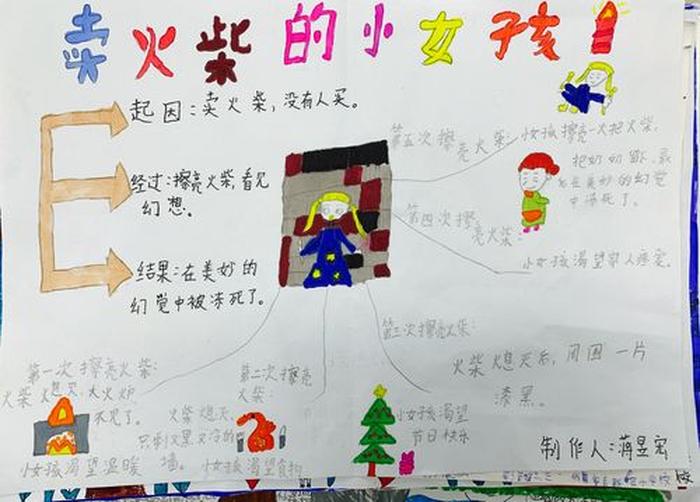 卖火柴的小女孩
起因:卖火柴,没有人买。
经过:擦亮火柴,看见
幻想。
结果:在美妙的
幻觉中被冻死了。
第五次擦
亮火柴:女孩擦亮一把火柴,
把奶奶留
在美妙的幻觉
中冻死了。
第四次擦
亮火柴:
小女孩渴望家人疼爱。
第三次擦亮火柴:
火柴熄灭后,周围一片
漆黑。
小女孩渴望
节日快乐
第二次擦亮
火柴:
火柴熄灭,
只剩又黑又冷的
墙。
小女孩渴望食物
第一次擦亮火柴:
火柴熄灭,大火炉
不见了。
小女孩渴望温暖
制作人:蒋昱宏